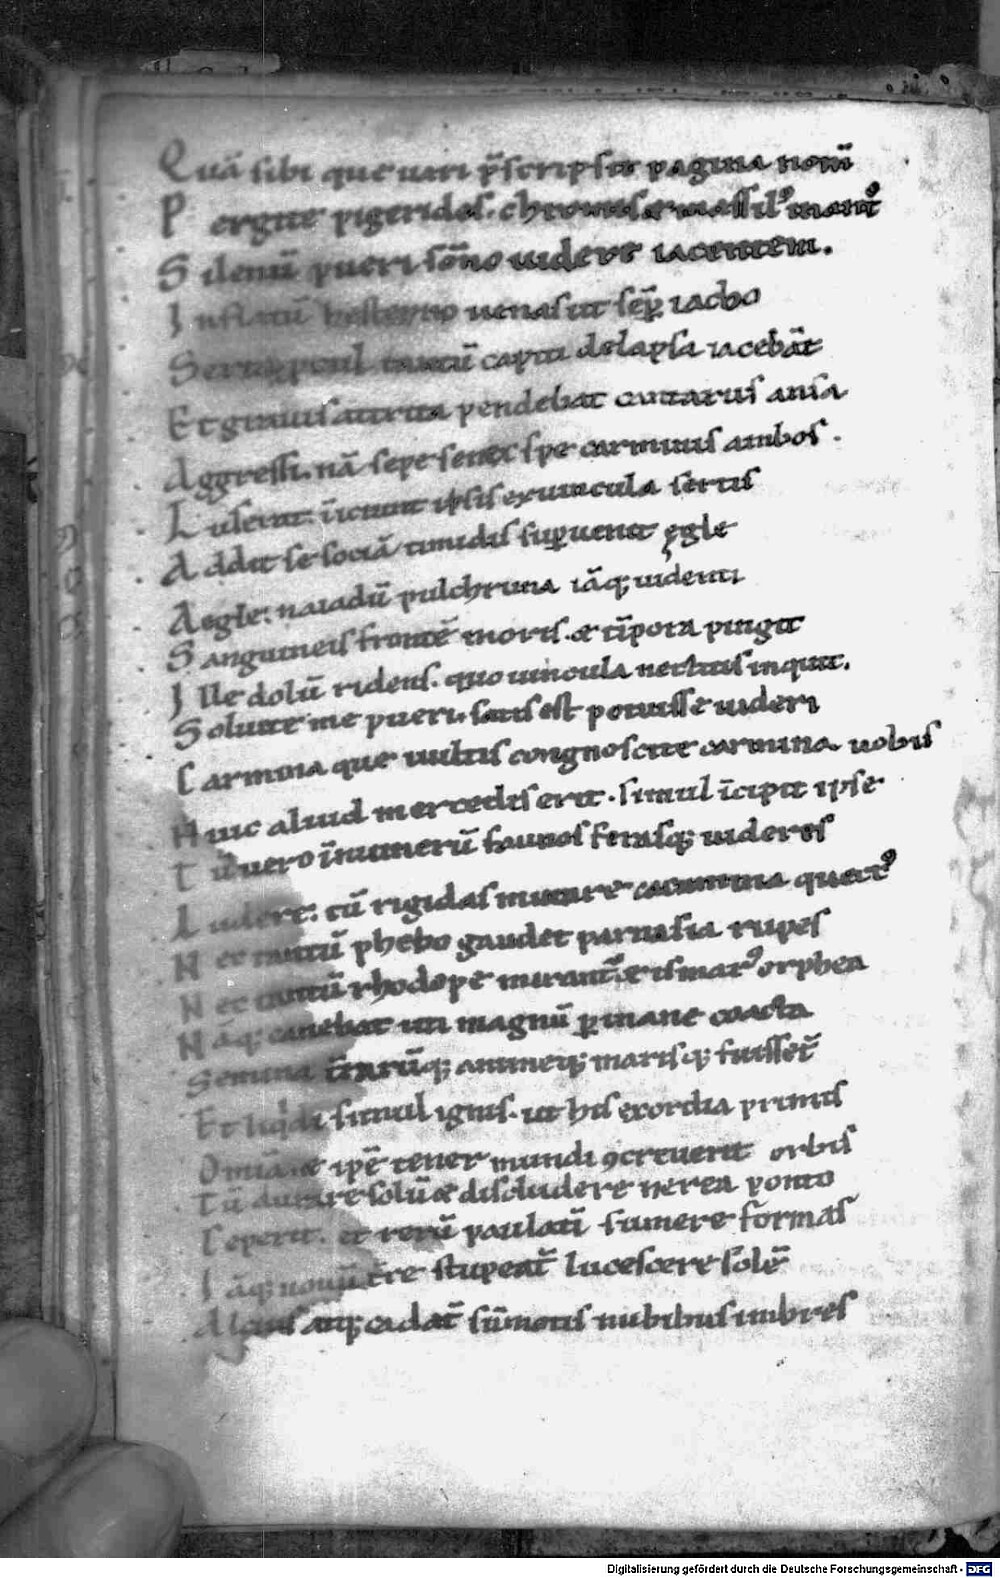 Quā sibi que uari p̄scripsit pagina nom̄
P ergite pigerides. chromis & massilꝰ in antꝰ
S ilenū pueri sōno uidere iacentem.
I nflatū hesterno uenas ut sēp̱ iacbo
Serta p̱cul tantū capiti delapsa iacebāt
Et grauis attrita pendebat cantarus ansa
Aggressi. nā sepe senex spe carminis ambos.
L userat. īiciunt ipsis ex uincula sertis
A ddit se sociā timidis sup̱uenit ęgle
Aegle: naiadū pulchrima iāq; uidenti
S anguineis frontē moris. & tīpora pingit
I lle dolū ridens. quo uincula nectitis inquit.
Soluite me pueri. satis est potuisse uideri
C armina que uultis congnoscite carmina uobis
Huic aliud mercedis erit. simul īcipit ipse
T ū uero ī numerū faunos ferasq; uideres
L udere: tū rigidas mutare cacumina quercꝰ
N ec tantū phebo gaudet parnasia rupes
N ec tantū rhodope mirant̄. & ismarꝰ orphea
N āq; canebat uti magnū p̱ inane coacta
Semina t̄rarūq; animeq; marisq; fuissēt
Et liqdi simul ignis. ut his exordia primis
Omīa. & ipse tener mundi ꝯcreuerit orbis
T ū durare solū & discludere nerea ponto
C eperit. et rerū paulatī sumere formas
I āq; nouū t̄re stupeāt lucescere solē
Altius atq; cadāt sūmotis nubibus imbres
Digitalisierung gefördert durch die Deutsche Forschungsgemeinschaft - DFG